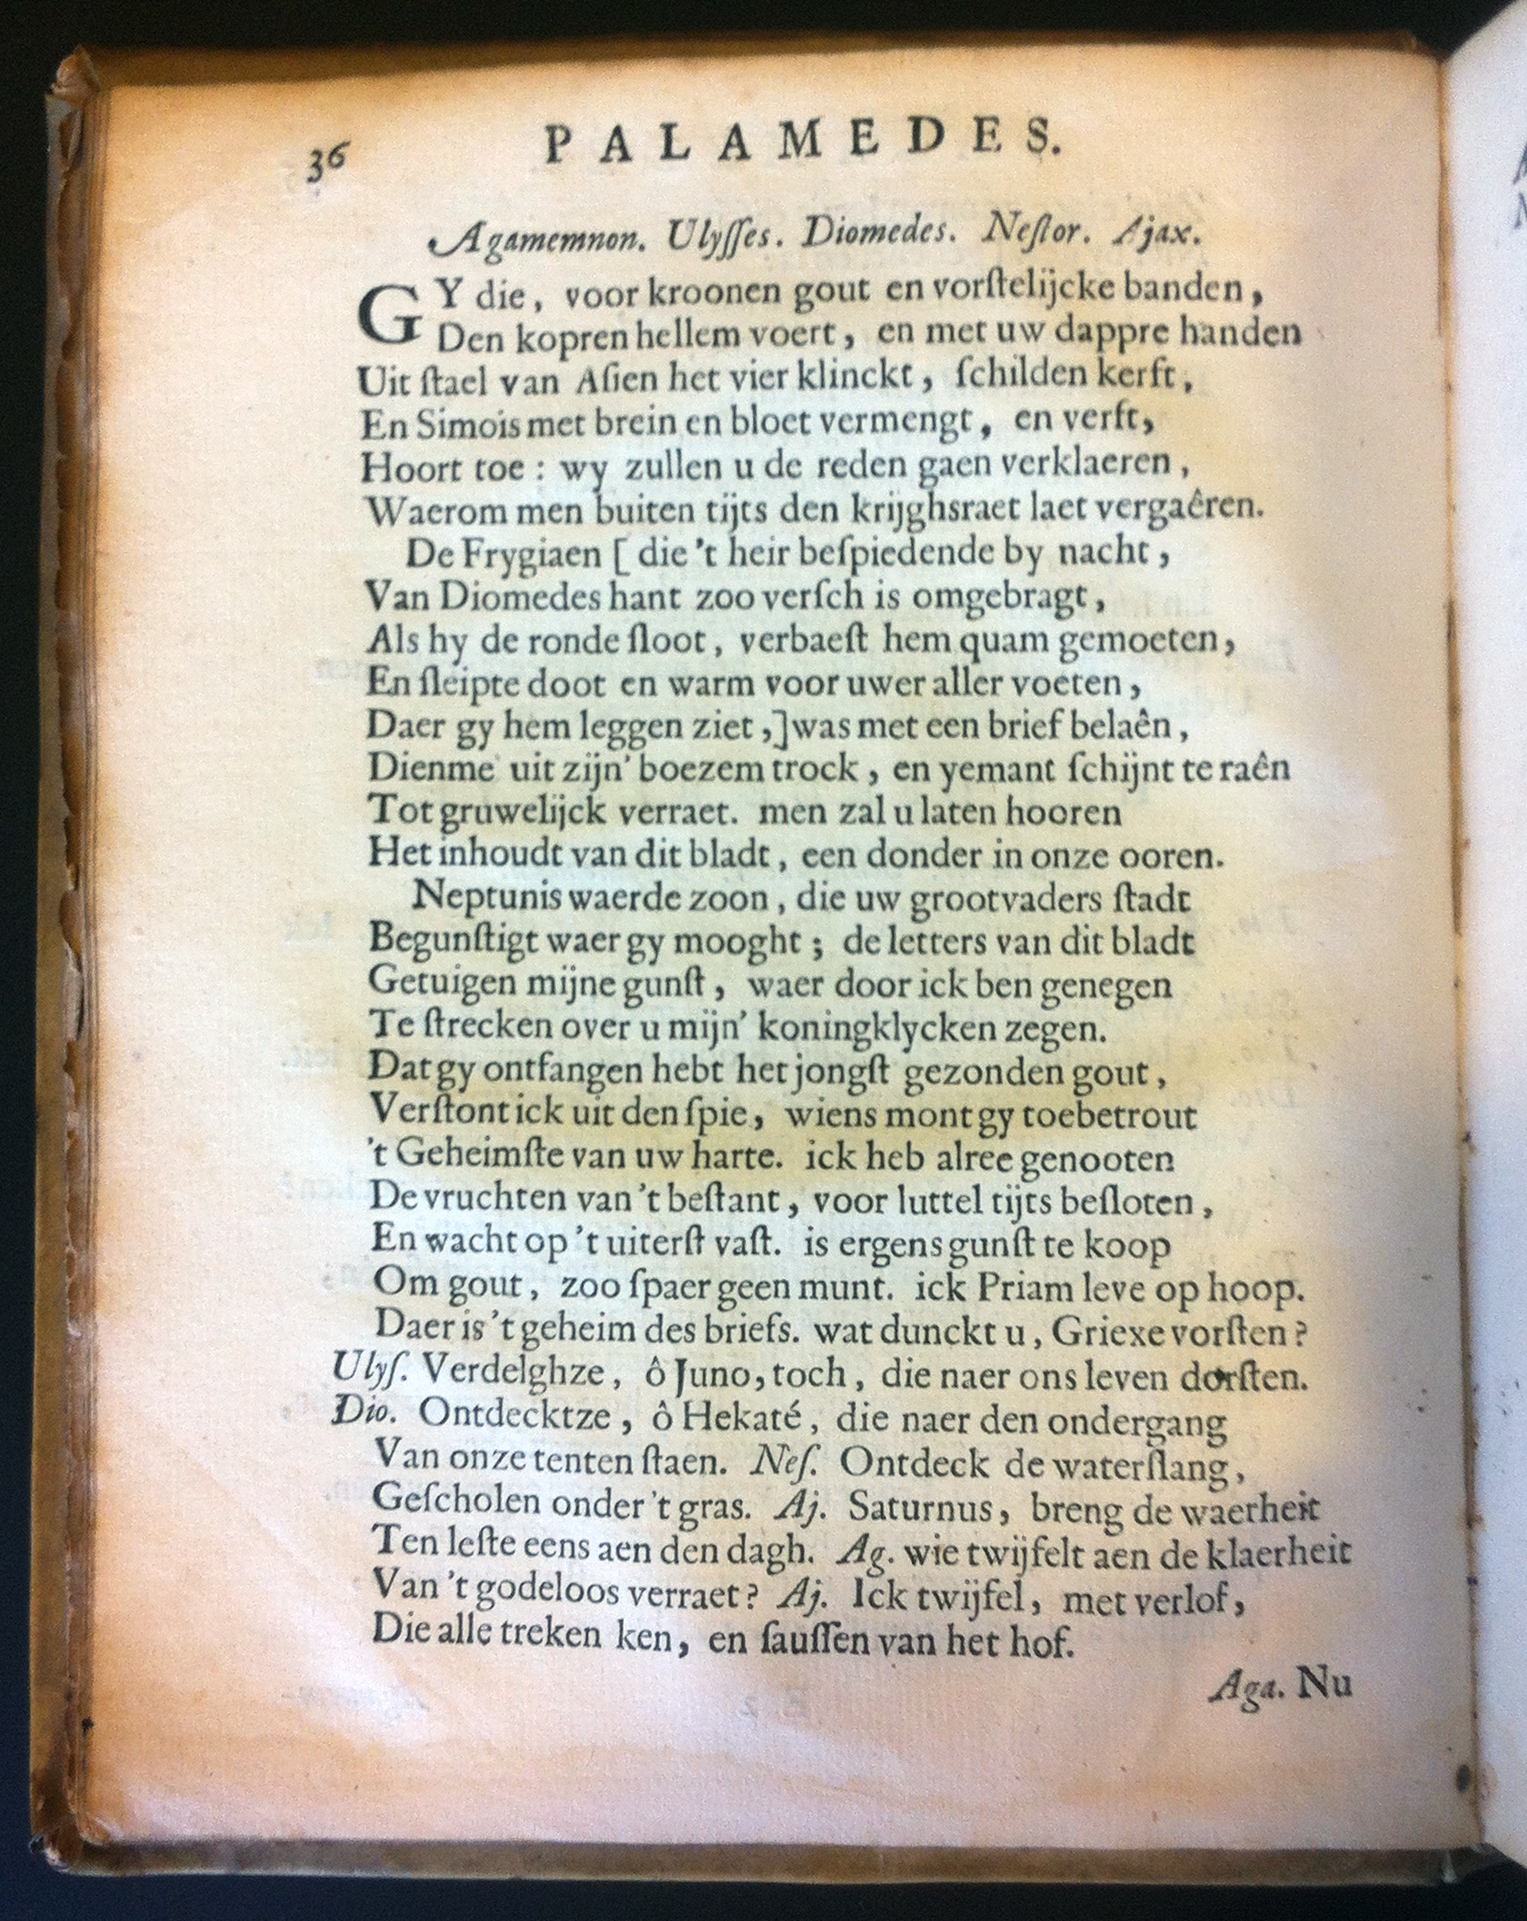 36 PALAMEDES.
Agamemnon. Ulyſſes. Diomedes. Neſtor. Ajax.
GY die, voor kroonen gout en vorſtelijcke banden,
Den kopren hellem voert, en met uw dappre handen
Uit ſtael van Aſien het vier klinckt, ſchilden kerft,
En Simois met brein en bloet vermengt, en verft,
Hoort toe: wy zullen u de reden gaen verklaeren,
Waerom men buiten tijts den krijghsraet laet vergaêren.
De Frygiaen [ die 't heir beſpiedende by nacht,
Van Diomedes hant zoo verſch is omgebragt,
Als hy de ronde ſloot, verbaeſt hem quam gemoeten,
En ſleipte doot en warm voor uwer aller voeten,
Daer gy hem leggen ziet,] was met een brief belaên,
Dienme uit zijn' boezem trock, en yemant ſchijnt te raên
Tot gruwelijck verraet. men zal u laten hooren
Het inhoudt van dit bladt, een donder in onze ooren.
Neptunis waerde zoon, die uw grootvaders ſtadt
Begunſtigt waer gy mooght; de letters van dit bladt
Getuigen mijne gunſt, waer door ick ben genegen
Te ſtrecken over u mijn' koningklycken zegen.
Dat gy ontfangen hebt het jongſt gezonden gout,
Verſtont ick uit den ſpie, wiens mont gy toebetrout
't Geheimſte van uw harte. ick heb alree genooten
De vruchten van 't beſtant, voor luttel tijts beſloten,
En wacht op 't uiterſt vaſt. is ergens gunſt te koop
Om gout, zoo ſpaer geen munt. ick Priam leve op hoop.
Daer is 't geheim des briefs. wat dunckt u, Griexe vorſten?
Ulyſ. Verdelghze, ô Juno, toch, die naer ons leven dorſten.
Dio. Ontdecktze, ô Hekaté, die naer den ondergang
Van onze tenten ſtaen. Neſ. Ontdeck de waterſlang,
Geſcholen onder 't gras. Aj. Saturnus, breng de waerheit
Ten leſte eens aen den dagh. Ag. wie twijfelt aen de klaerheit
Van 't godeloos verraet? Aj. Ick twijfel, met verlof,
Die alle treken ken, en ſauſſen van het hof.
Aga. Nu